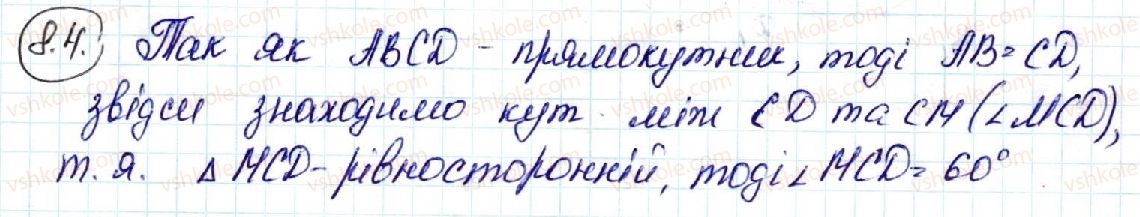 8.4. Так як ABCD - прямокутник, тоді AB = CD,
звідси знаходимо кут між CD та CM (∠MCD),
т.я. Δ MCD - рівносторонній, тоді ∠MCD = 60°